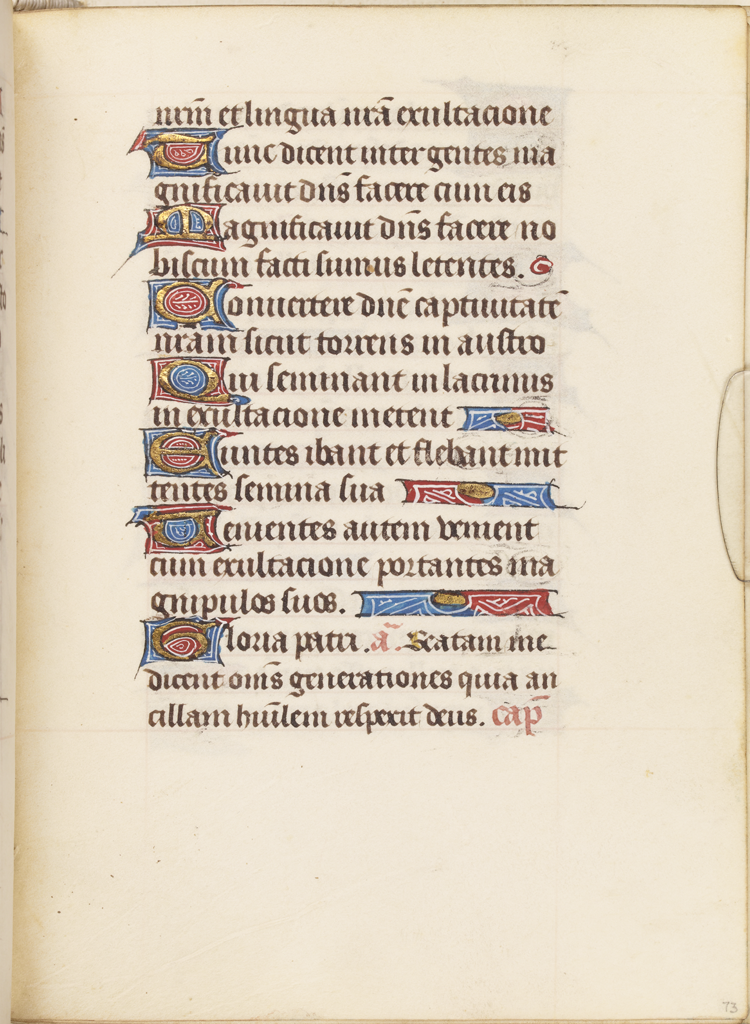 nrm̄ et lingua nr̄a exultacione
Tunc dicent inter gentes ma
gnificauit dn̄s facere cum eis
Magnificauit dn̄s facere no
biscum facti sumus letentes.
Conuertere dn̄e captiuitatē
nram sicut torrens in austro
Qui seminant in lacrimis
in exultacione metent
Euntes ibant et flebant mit
tentes semina sua
Uenientes autem venient
cum exultacione portantes ma
gnipulos suos.
Gloria patri. a͞. Beatam me
dicent oms̄ generationes quia an
cillam huīlem respexit deus. cap̄
73